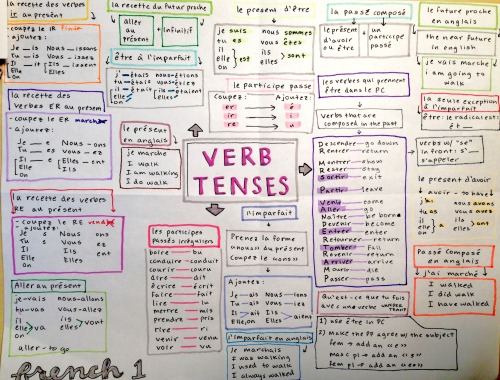 la recette des verbes
ir au présent
- coupez le IR finir
- ajoutez:
Je __ is Nous __ issons
Tu __ is Vous __ issez
Il __ it Ils __ issent
Elle Elles
On
la recette des
Verbes ER au présent
- coupez le ER
- ajoutez:
Je __ e Nous - ons
Tu __ es vous - ez
Il __ e Ils - ent
Elle Elles
on
la recette des verbes
RE au présent
- coupez le RE
- ajoutez:
Je s Nous ons
Tu s Vous ez
Il Ils ent
Elle Elles
On
Aller au présent
je-vais nous-allons
tu-vas vous-allez
il ils
elle va elles vont
on
aller - to go
french 1
la recette du futur proche
aller
au
présent
+
Infinitif
être à l'imparfait
j'-étais nous-étions
tu-étais vous-étiez
il-était ils-étaient
elle elles
on
le présent
en anglais
je marche
I walk
I am walking
I do walk
les participes
passés irréguliers
boire - bu
conduire - conduit
courir - couru
dire - dit
écrire - écrit
faire - fait
lire - lu
mettre - mis
prendre - pris
rire - ri
venir - venu
voir - vu
le présent d'être
je suis nous sommes
tu es vous êtes
il ils
elle est elles sont
on
le participe passé
Coupez: Ajoutez:
er é
ir i
re u
VERB
TENSES
l'imparfait
Prenez la forme
«nous» du présent
Coupez le «ons»
Ajoutez:
Je - ais Nous - ions
Tu - ais Vous - iez
Il - ait Ils - aient
Elle, On Elles
l'imparfait en anglais
Je marchais
I was walking
I used to walk
I always walked
la passé composé
le présent
d'avoir
ou être
+
un
participe
passé
les verbes qui prennent
être dans le PC
Verbs that are
composed in the past
Descendre - go down
Rentrer - return
Monter - show
Rester - stay
Sortir - exit
Partir - leave
Venir - come
Aller - go
Naître - be born
Devenir - become
Entrer - enter
Retourner - return
Tomber - fall
Revenir - return
Arriver - arrive
Mourir - die
Passer - pass
Qu'est-ce que tu fais
avec une verbe
1) use être in PC
2) make the PP agree w/ the subject
fem → add an «e»
masc pl → add an «s»
fem pl → add an «es»
le future proche
en anglais
the near future
in english
je vais marcher
I am going to
walk
la seule exception
à l'imparfait
être: le radical est:
ét__
verbs w/ "se"
in front: s'
s'appeler
le présent d'avoir
avoir - to have
j'ai nous avons
tu as vous avez
il ils
elle a elles ont
on
Passé Composé
en anglais
j'ai marché
I walked
I did walk
I have walked